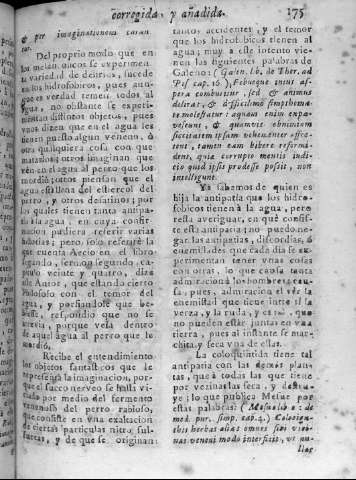 corregida, y añadida. 175
& per imaginationem curan
tur.
Del proprio modo que en
los melancolicos se experimen
ta variedad de delirios, sucede
en los hidrofobicos; pues aun-
que es verdad temen todos al
agua, no obstante se experi-
mentan distintos objetos, pues
unos dizen que en el agua les
tienen puesto algun veneno, ò
otra qualquiera cosa con que
matarlos; otros imaginan que
vèn en el agua al perro que los
mordiò; otros mensan que el
agua està llena del estiercol del
perro, y otros desatinos; por
los quales tienen tanta antipa-
tia à la agua, en cuya consti-
tucion pudiera referir varias
historias; pero solo referirè la
que cuenta Aecio en el libro
segundo, sermo segundo, ca-
pitulo veinte y quatro, dize
este Autor, que estando cierto
Filosofo con el temor del
agua, y porfiandole que be-
biesse, respondio que no se
atrevia, porque veìa dentro
de aquel agua al perro que le
mordiò.
Recibe el entendimiento
los objetos fantasticos que le
representa la imaginacion, por-
que el succo nerveo se halla vi-
ciado por medio del fermento
venenoso del perro rabioso,
que consiste en una exaltacion
de ciertas particulas nitro sul-
fureas, y de que se originan
tantos accidentes, y el temor
que los hidrofobicos tienen al
agua; muy à este intento vie-
nen las siguientes palabras de
Galeno: (Galen. lib. de Ther. ad
Pis. cap. 16.) Febusque enim as-
pera comburitur, sed & animus
delirat, & dificilimo simpthoma-
te molestatur: aquam enim expa-
vescunt, & quamvis obnimiam
siccitatem ipsam vehementer asse-
tent, tamen eam bibere reformi-
dant, quia corrupto mentis indi-
cio quid ipsis prodesse possit, non
intelligunt.
Ya sabemos de quien es
hija la antipatia que los hidro-
fobicos tienen à la agua, pero
resta averiguar, en què consis-
te esta antipatia; no puedo ne-
gar las antipatias, discordias, ò
enemistades que cada dia se ex-
perimentan tener unas cosas
con otras, lo que causa tanta
admiracion à los hombres;
pues, admiracion el vèr la
enemistad que tiene entre sì la
verza, y la ruda, y es tal, que
no pueden estàr juntas en una
tierra, pues al instante se mar-
chita, y seca una de ellas.
La coloquintida tiene tal
antipatia con las demàs plan-
tas, que à todas las que tiene
por vezinas las seca, y destru-
ye; lo que publica Mesue por
estas palabras: (Mesue lib. 2. de
med. pur. simp. cap. 4.) Coloqin-
tis herbas alias omnes sibi vici-
nas veneni modo interficit, ut nu-
llas